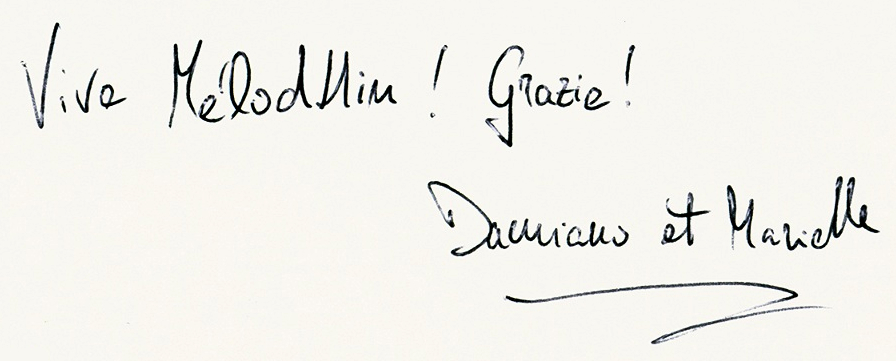 Vive MélodHin ! Grazie !
Damiano et Marielle